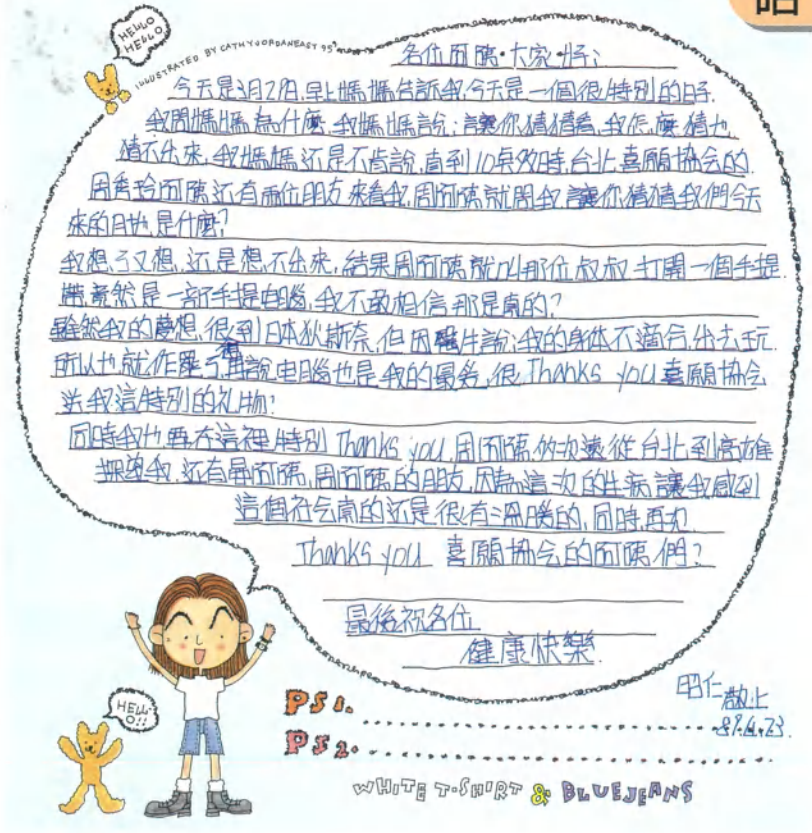 HELLO
HELLO
ILLUSTRATED BY CATHYJORDANEAST 95'
各位阿姨、大家好:
今天是3月27日,早上媽媽告訴我,今天是一個很特別的日子.
我問媽媽為什麼,我媽媽說:讓你猜猜看,我怎麼猜也
猜不出來,我媽媽还是不肯說,直到10点效時,台北喜願協会的.
周 阿姨还有兩位朋友來看我,周阿姨就問我,讓你猜猜我們今天
來的目地是什麼?
我想了又想,还是想不出來,結果周阿姨就叫那位叔叔打開一個手提
帶竟然是一部手提电腦,我不敢相信那是真的?
雖然我的夢想,很想到日本狄斯奈,但因醫生說:我的身体不適合,出去玩.
所以也就作罷了,再說电腦也是我的最爱,很Thanks you喜願協会
送我這特別的礼物?
同時我也要在這裡特別Thanks you,周阿姨 次遠從台北到高雄
探望我,还有 阿姨,周阿姨的朋友,因為這次的生病讓我感到
這個社会真的还是很有温暖的,同時再次
Thanks you 喜願協会的阿姨們?
最後祝各位
健康快樂.
昭仁敬上
HELL-
O!!
PS1.
PS2.
WHITE T-SHIRT & BLUEJEANS